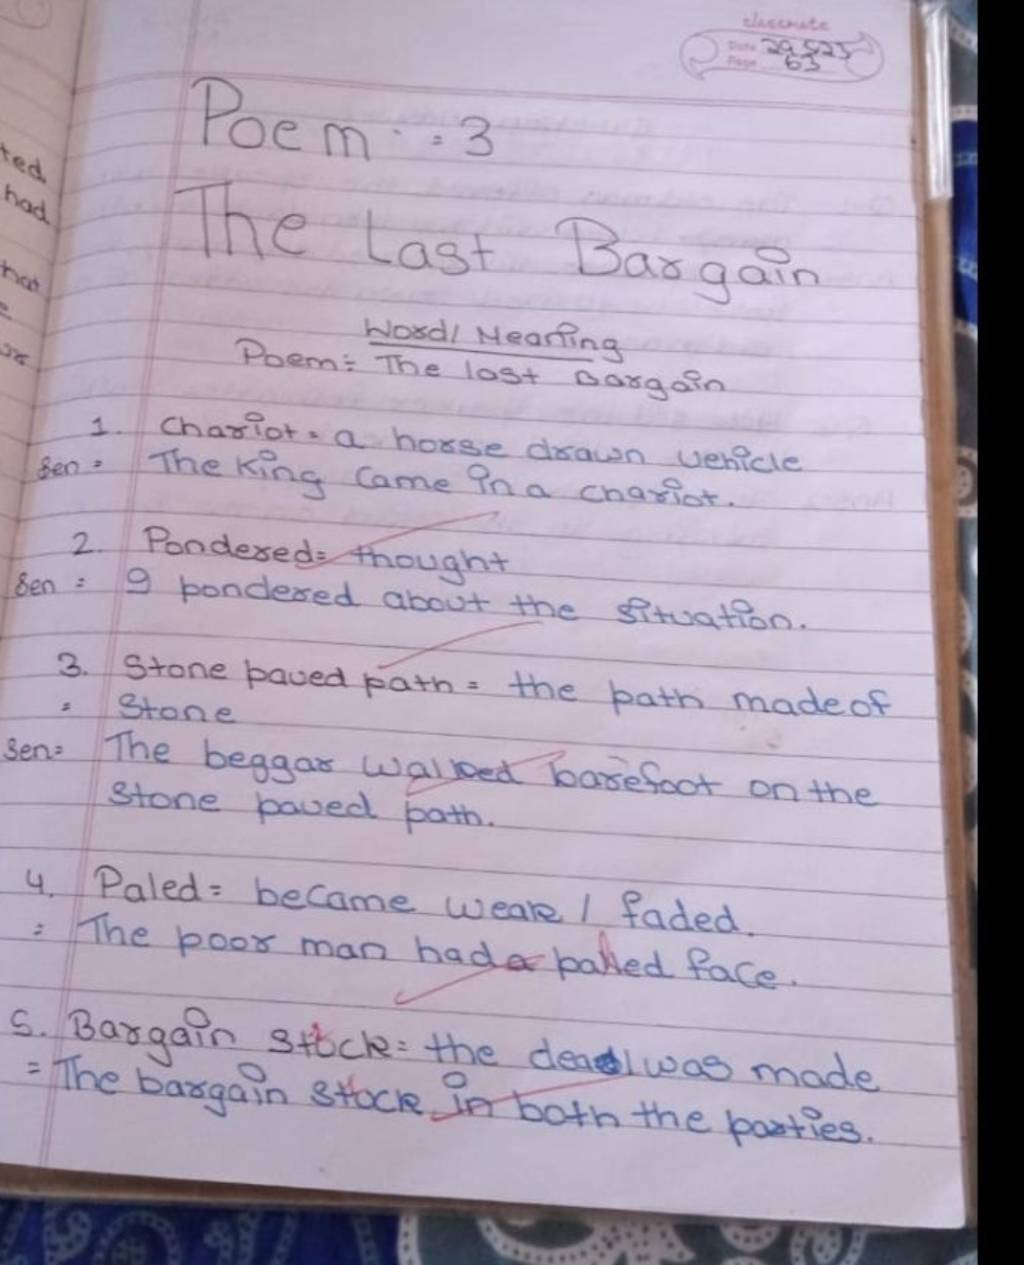 ted
had
hat
classmate
Date 29 5 25
Page 63
Poem :- 3
The Last Bargain
Word/ Meaning
Poem = The last Bargain
1. Chariot = a horse drawn vehicle
Sen = The King Came in a chariot.
2. Pondered = thought
Sen = I pondered about the situation.
3. Stone paved path = the path made of
= Stone
Sen = The beggar walked barefoot on the
Stone paved path.
4. Paled = became weak / faded.
= The poor man had a paled face.
5. Bargain stuck = the deal was made
= The bargain Stuck in both the parties.